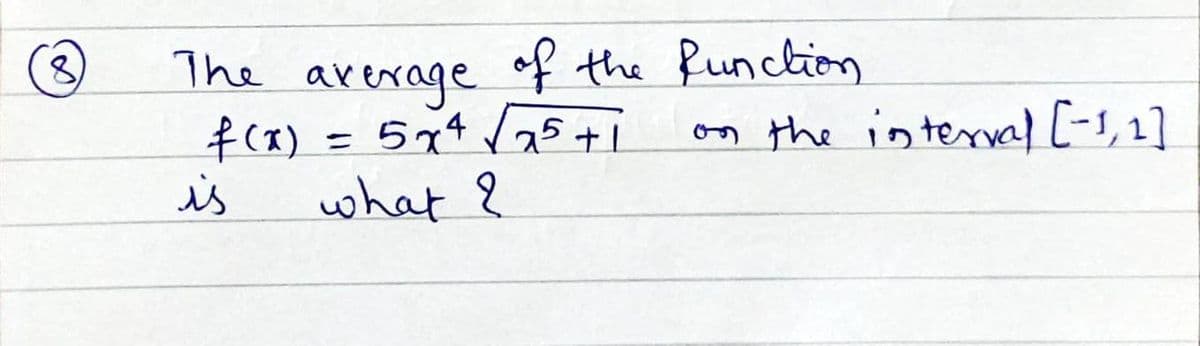 ⑧ The average of the function
f(x) = 5x⁴ √x⁵+1 on the interval [-1,1]
is what ?